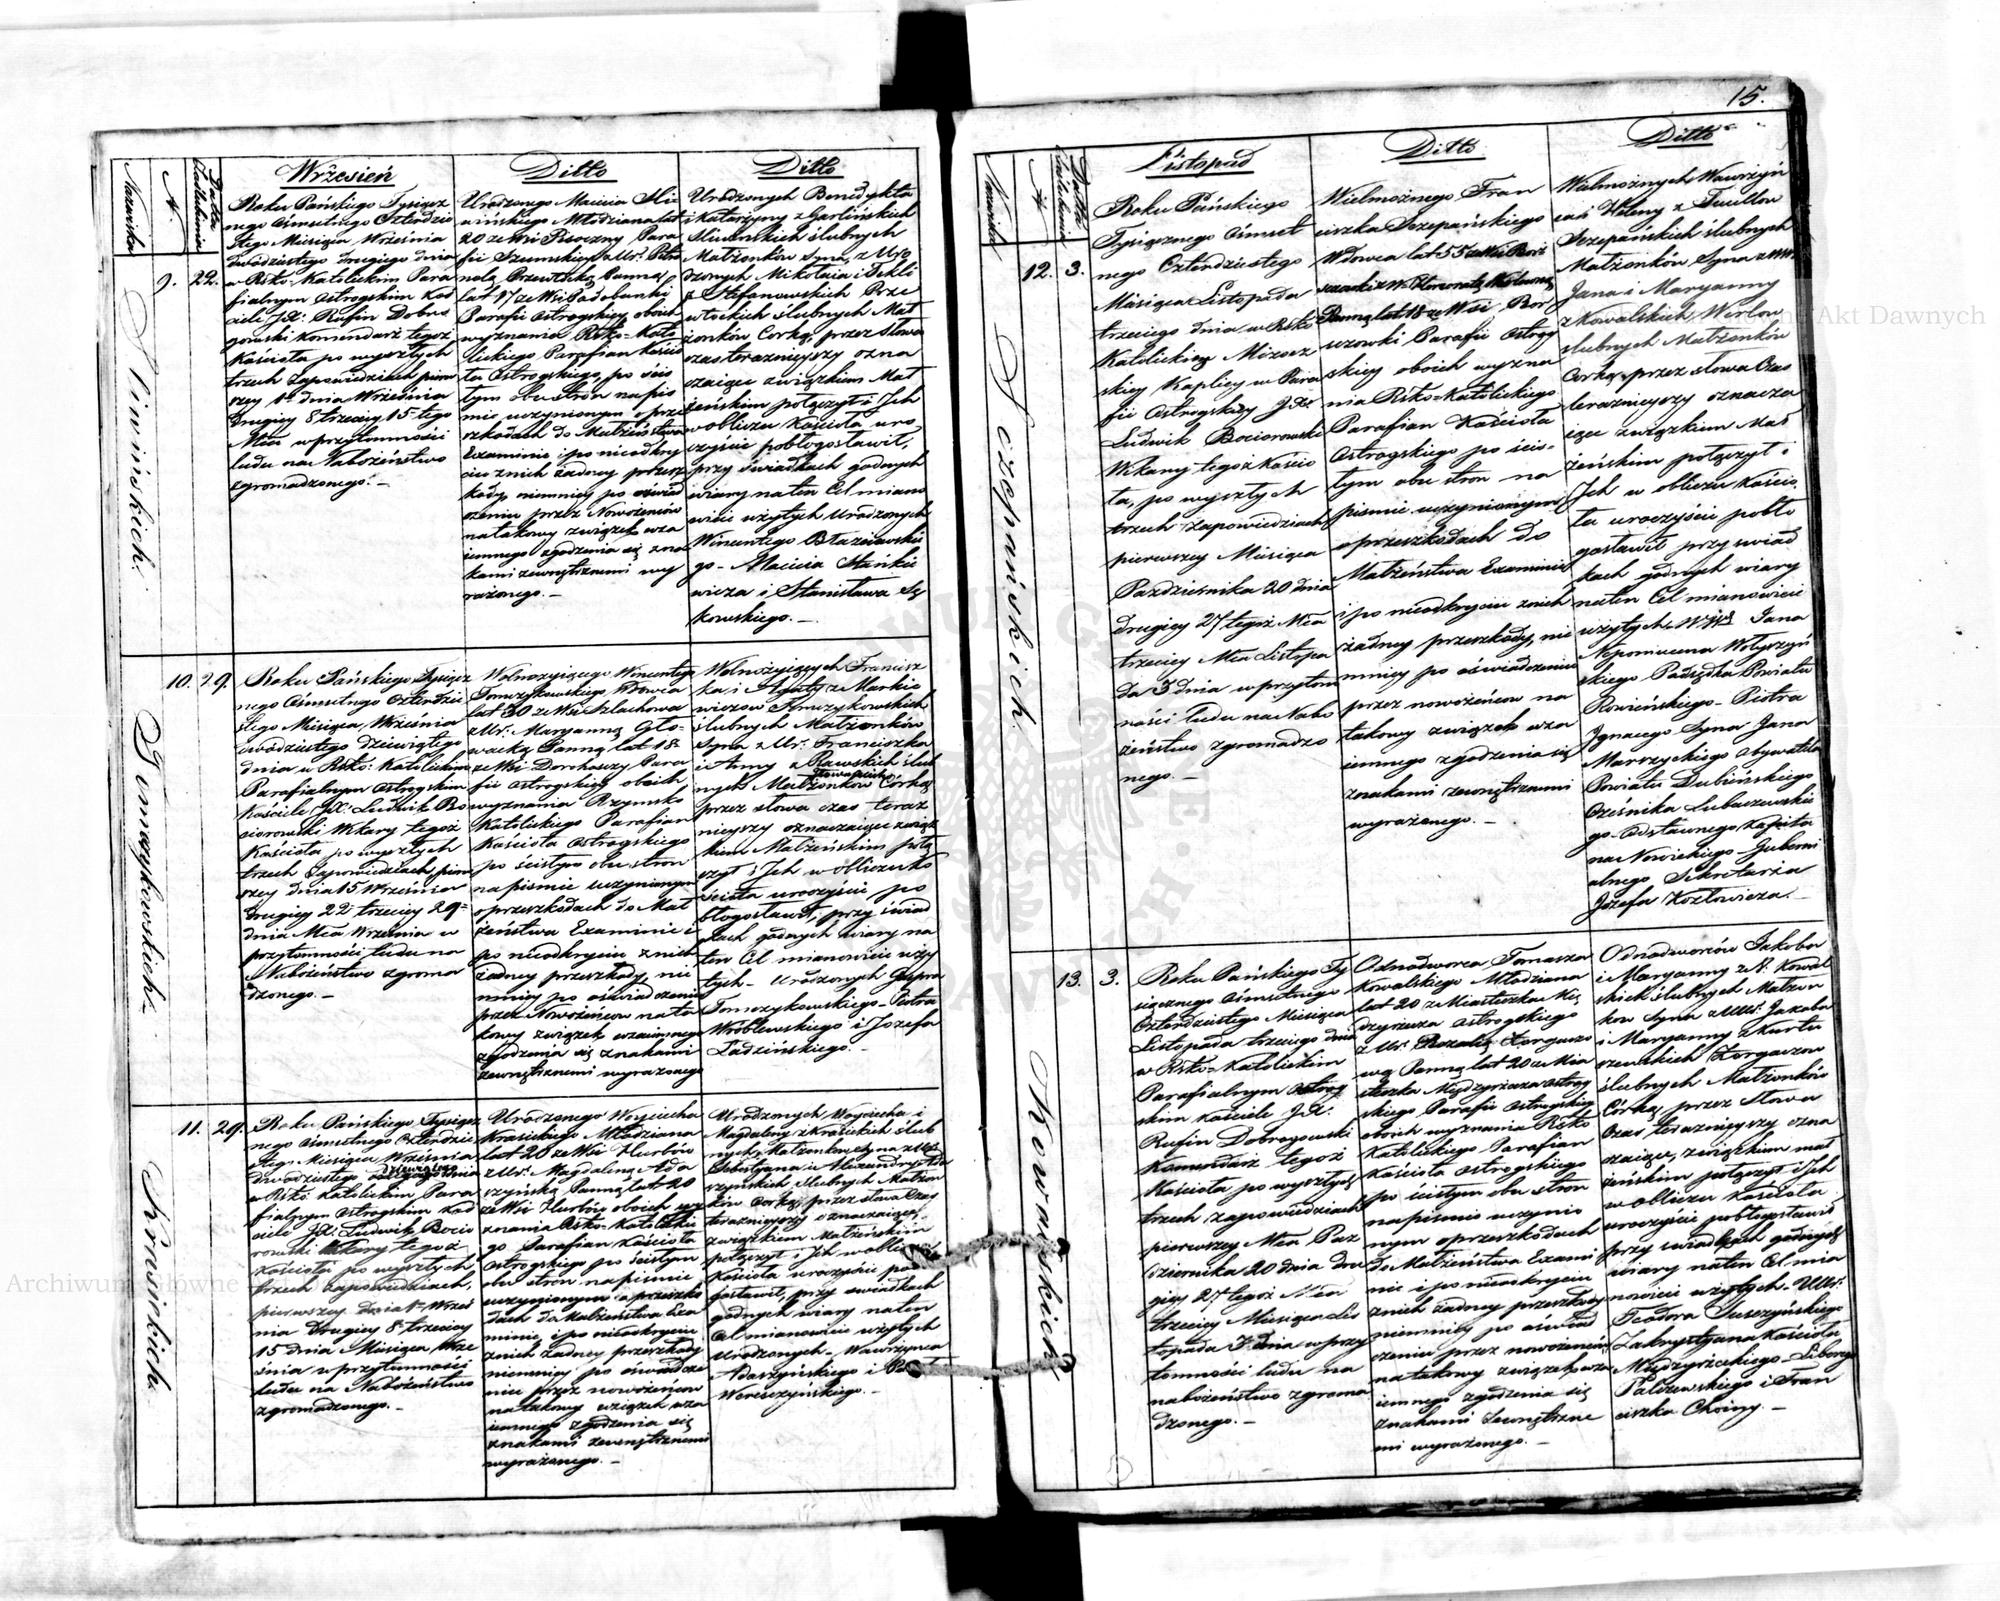 15.
Nazwiska
N.
Data Zaślubienia
Wrzesień
Ditto
Ditto
9.
22.
Sliwińskich.
Roku Pańskiego Tysiącz
nego Ośmsetnego Czterdzie
stego Miesiąca Września
dwódziestego drugiego dnia
w Rsko-Katolickim Para
fialnym Ostrogskim Koś
ciele JX: Rufin Dobro
gowski Komendarz tegoż
Kościoła po wyszłych
trzech Zapowiedziach pierw
szey 1o dnia Września
drugiey 8 trzeciey 15 tego
Mca w przytomności
ludu na Nabożeństwo
zgromadzonego. —
Urodzonego Macieia Sli
wińskiego Młodziana lat
20 ze Wsi Pivoczny Para
fii Szumskiey z Ur: Petro
nelą Przewłocką Panną
lat 17 ze Wsi Badobanki
Parafii Ostrogskiey oboich
wyznania Rsko-Kato
lickiego Parafian Kościo
ła Ostrogskiego, po ścis
łym obu stron na piś
mie uczynionym o prze
szkodach do Małżeństwa
Examinie i po nieodkry
ciu z nich żadney przesz
kody, niemniey po oświad
czeniu przez Nowożeńców
na takowy związek wza
iemnego zgodzenia się zna
kami zewnętrznemi wy
rażonego. —
Urodzonych Benedykta
i Katarzyny z Garlińskich
Sliwińskich ślubnych
Małżonków Syna, z Uro
dzonych Mikołaia i Tekli
z Stefanowskich Prze
włockich ślubnych Mał
żonków Corką, przez słowa
czas teraznieyszy ozna
czaiące związkiem Mał
żeńskim połączył i Ich
w obliczu Kościoła uro
czyście pobłogosławił,
przy świadkach godnych
wiary na ten Cel miano
wicie użytych Urodzonych
Wincentego Błażeiowskie
go — Macieia Stańkie
wicza i Stanisława Sę
kowskiego. —
10.
29.
Tomczykowskich.
Roku Pańskiego Tysiącz
nego Ośmsetnego Czterdzie
stego Miesiąca Września
dwódziestego dziewiątego
dnia w Rsko: Katolickim
Parafialnym Ostrogskim
Kościele JX: Ludwik Bo
ciorowski Wikary tegoż
Kościoła po wyszłych
trzech Zapowiedziach, pierw
szey dnia 15 Września
drugiey 22 trzeciey 29
dnia Mca Września w
przytomności ludu na
Nabożeństwo zgroma
dzonego. —
Wolnożyiącego Wincentego
Tomczykowskiego Wdowca
lat 30 ze Wsi Szlachowa
z Ur: Maryanną Gło
wacką Panną lat 18
ze Wsi Dorohoszy Para
fii Ostrogskiey oboich
wyznania Rzymsko
Katolickiego Parafian
Kościoła Ostrogskiego
po ścisłym obu stron
na piśmie uczynionym
o przeszkodach do Mał
żeństwa Examinie i
po nieodkryciu z nich
żadney przeszkody, nie
mniey po oświadczeniu
przez Nowożeńców na ta
kowy związek wzaiemnego
zgodzenia się znakami
zewnętrznemi wyrażonego
Wolnożyiących Francisz
ka i Agaty z Markie
wiczow Tomczykowskich
ślubnych Małżonków
Syna z Ur: Franciszka
i Anny z Rawskich
Głowackich ślub
nych Małżonków Córką
przez słowa czas teraz
nieyszy oznaczaiące związ
kiem Małżeńskim połą
czył i Ich w obliczu Ko
ścioła uroczyście po
błogosławił, przy świad
kach godnych wiary na
ten Cel mianowicie uży
tych — Urodzonych Gaspra
Tomczykowskiego — Piotra
Wróblewskiego i Jozefa
Ladzińskiego. —
11.
29.
Krasickich
Roku Pańskiego Tysiącz
nego Ośmsetnego Czterdzie
stego Miesiąca Września
dwódziestego dziewiątego dnia
w Rsko: Katolickim Para
fialnym Ostrogskim Koś
ciele JX: Ludwik Bocio
rowski Wikary tegoż
Kościoła po wyszłych
trzech Zapowiedziach,
pierwszey dnia 1o Wrześ
nia drugiey 8 trzeciey
15 dnia Miesiąca Wrze
śnia w przytomności
ludu na Nabożeństwo
zgromadzonego. —
Urodzonego Woyciecha
Krasickiego Młodziana
lat 20 ze Wsi Hurbów
z Ur: Magdaleną Ada
szyńską Panną lat 20
ze Wsi Hurbów oboich wy
znania Rsko-Katolickie
go Parafian Kościoła
Ostrogskiego po ścisłym
obu stron na piśmie
uczynionym o przeszko
dach do Małżeństwa Exa
minie, i po nieodkryciu
z nich żadney przeszkody
niemniey po oświadcze
niu przez nowożeńcow
na takowy związek wza
iemnego zgodzenia się
znakami zewnętrznemi
wyrażonego. —
Urodzonych Woyciecha i
Magdaleny z Krasickich ślub
nych Małżonków syna z Ur:
Sebestyana i Alexandry Ada
szyńskich ślubnych Małżon
ków Corką, przez słowa Czas
teraznieyszy oznaczaiące
związkiem Małżeńskim
połączył i Ich w obliczu
Kościoła uroczyście pobło
gosławił, przy świadkach
godnych wiary na ten
Cel mianowicie użytych
Urodzonych — Wawrzyńca
Adaszyńskiego i
Wereszczyńskiego. —
Nazwiska
N.
Data Zaślubienia
Listopad
Ditto
Ditto
12.
3.
Szczepańskich.
Roku Pańskiego
Tysiącznego Ośmset
nego Czterdziestego
Miesiąca Listopada
trzeciego dnia w Rsko
Katolickiey Mizocz
skiey Kaplicy w Para
fii Ostrogskiey JX:
Ludwik Bociorowski
Wikary tegoż Kościo
ła, po wyszłych
trzech Zapowiedziach
pierwszey Miesiąca
Października 20 dnia
drugiey 27 tegoż Mca
trzeciey Mca Listopa
da 3 dnia w przytom
ności ludu na Nabo
żeństwo zgromadzo
nego. —
Wielmożnego Fran
ciszka Szczepańskiego
Wdowca lat 55 ze Wsi
Panną lat 18 ze Wsi Bor
szczowki Parafii Ostrog
skiey oboich wyzna
nia Rsko-Katolickiego
Parafian Kościoła
Ostrogskiego po ścis
łym obu stron na
piśmie uczynionym
o przeszkodach do
Małżeństwa Examinie
i po nieodkryciu z nich
żadney przeszkody, nie
mniey po oświadczeniu
przez nowożeńców na
takowy związek wza
iemnego zgodzenia się
znakami zewnętrznemi
wyrażonego. —
Wielmożnych Wawrzyń
ca i Heleny z
Szczepańskich ślubnych
Małżonków Syna z WW:
Jana i Maryanny
z Kowalskich
ślubnych Małżonków
Corką, przez słowa Czas
teraznieyszy oznacza
iące związkiem Mał
żeńskim połączył i
Ich w obliczu Kościo
ła uroczyście pobło
gosławił przy świad
kach godnych wiary
na ten Cel mianowicie
użytych WWJPP Jana
Nepomucena Wołyczyń
skiego Podsędka Powiatu
Rowieńskiego — Piotra
Jgnacego Syna Jana
Marszyckiego Obywatela
Powiatu Dubieńskiego
Cześnika Lubaczewskie
go — Odstawnego Kapita
na Nowickiego — Guberni
alnego Sekretarza
Józefa Kozłowicza. —
13.
3.
Kowalskich
Roku Pańskiego Ty
siącznego Ośmsetnego
Czterdziestego Miesiąca
Listopada trzeciego dnia
w Rsko-Katolickim
Parafialnym Ostrog
skim Kościele JX:
Rufin Dobrogowski
Komendarz tegoż
Kościoła po wyszłych
trzech zapowiedziach
pierwszey Mca Paz
dziernika 20 dnia dru
giey 27 tegoż Mca
trzeciey Miesiąca Lis
topada 3 dnia w przy
tomności ludu na
nabożeństwo zgroma
dzonego. —
Odnodworca Tomasza
Kowalskiego Młodziana
lat 20 z Miasteczka Mię
dzyrzecza Ostrogskiego
z Ur: Rozalią Zorgaczo
wą Panną lat 20 z Mia
steczka Międzyrzecza Ostrog
skiego Parafii Ostrogskiey
oboich wyznania Rsko
Katolickiego Parafian
Kościoła Ostrogskiego
po ścisłym obu stron
na piśmie uczynio
nym o przeszkodach
do Małżeństwa Exami
nie i po nieodkryciu
z nich żadney przeszkody
niemniey po oświad
czeniu przez nowożeńców
na takowy związek wza
iemnego zgodzenia się
znakami zewnętrzne
mi wyrażonego. —
Odnodworców Jakoba
i Maryanny Kowal
skich ślubnych Małżon
ków Syna z Ur: Jakoba
i Maryanny z Kurtu
szewskich Zorgaczow
ślubnych Małżonków
Córką, przez Słowa
Czas teraznieyszy ozna
czaiące, związkiem mał
żeńskim połączył i Ich
w obliczu Kościoła
uroczyście pobłogosławił
przy świadkach godnych
wiary na ten Cel mia
nowicie użytych — Ur:
Teodora Tuszczyńskiego
Zakrystyana Kościoła
Międzyrzeckiego —
Palczewskiego i Fran
ciszka Choiny. —
Archiwum Główne Akt Dawnych
Archiwum Główne Akt Dawnych